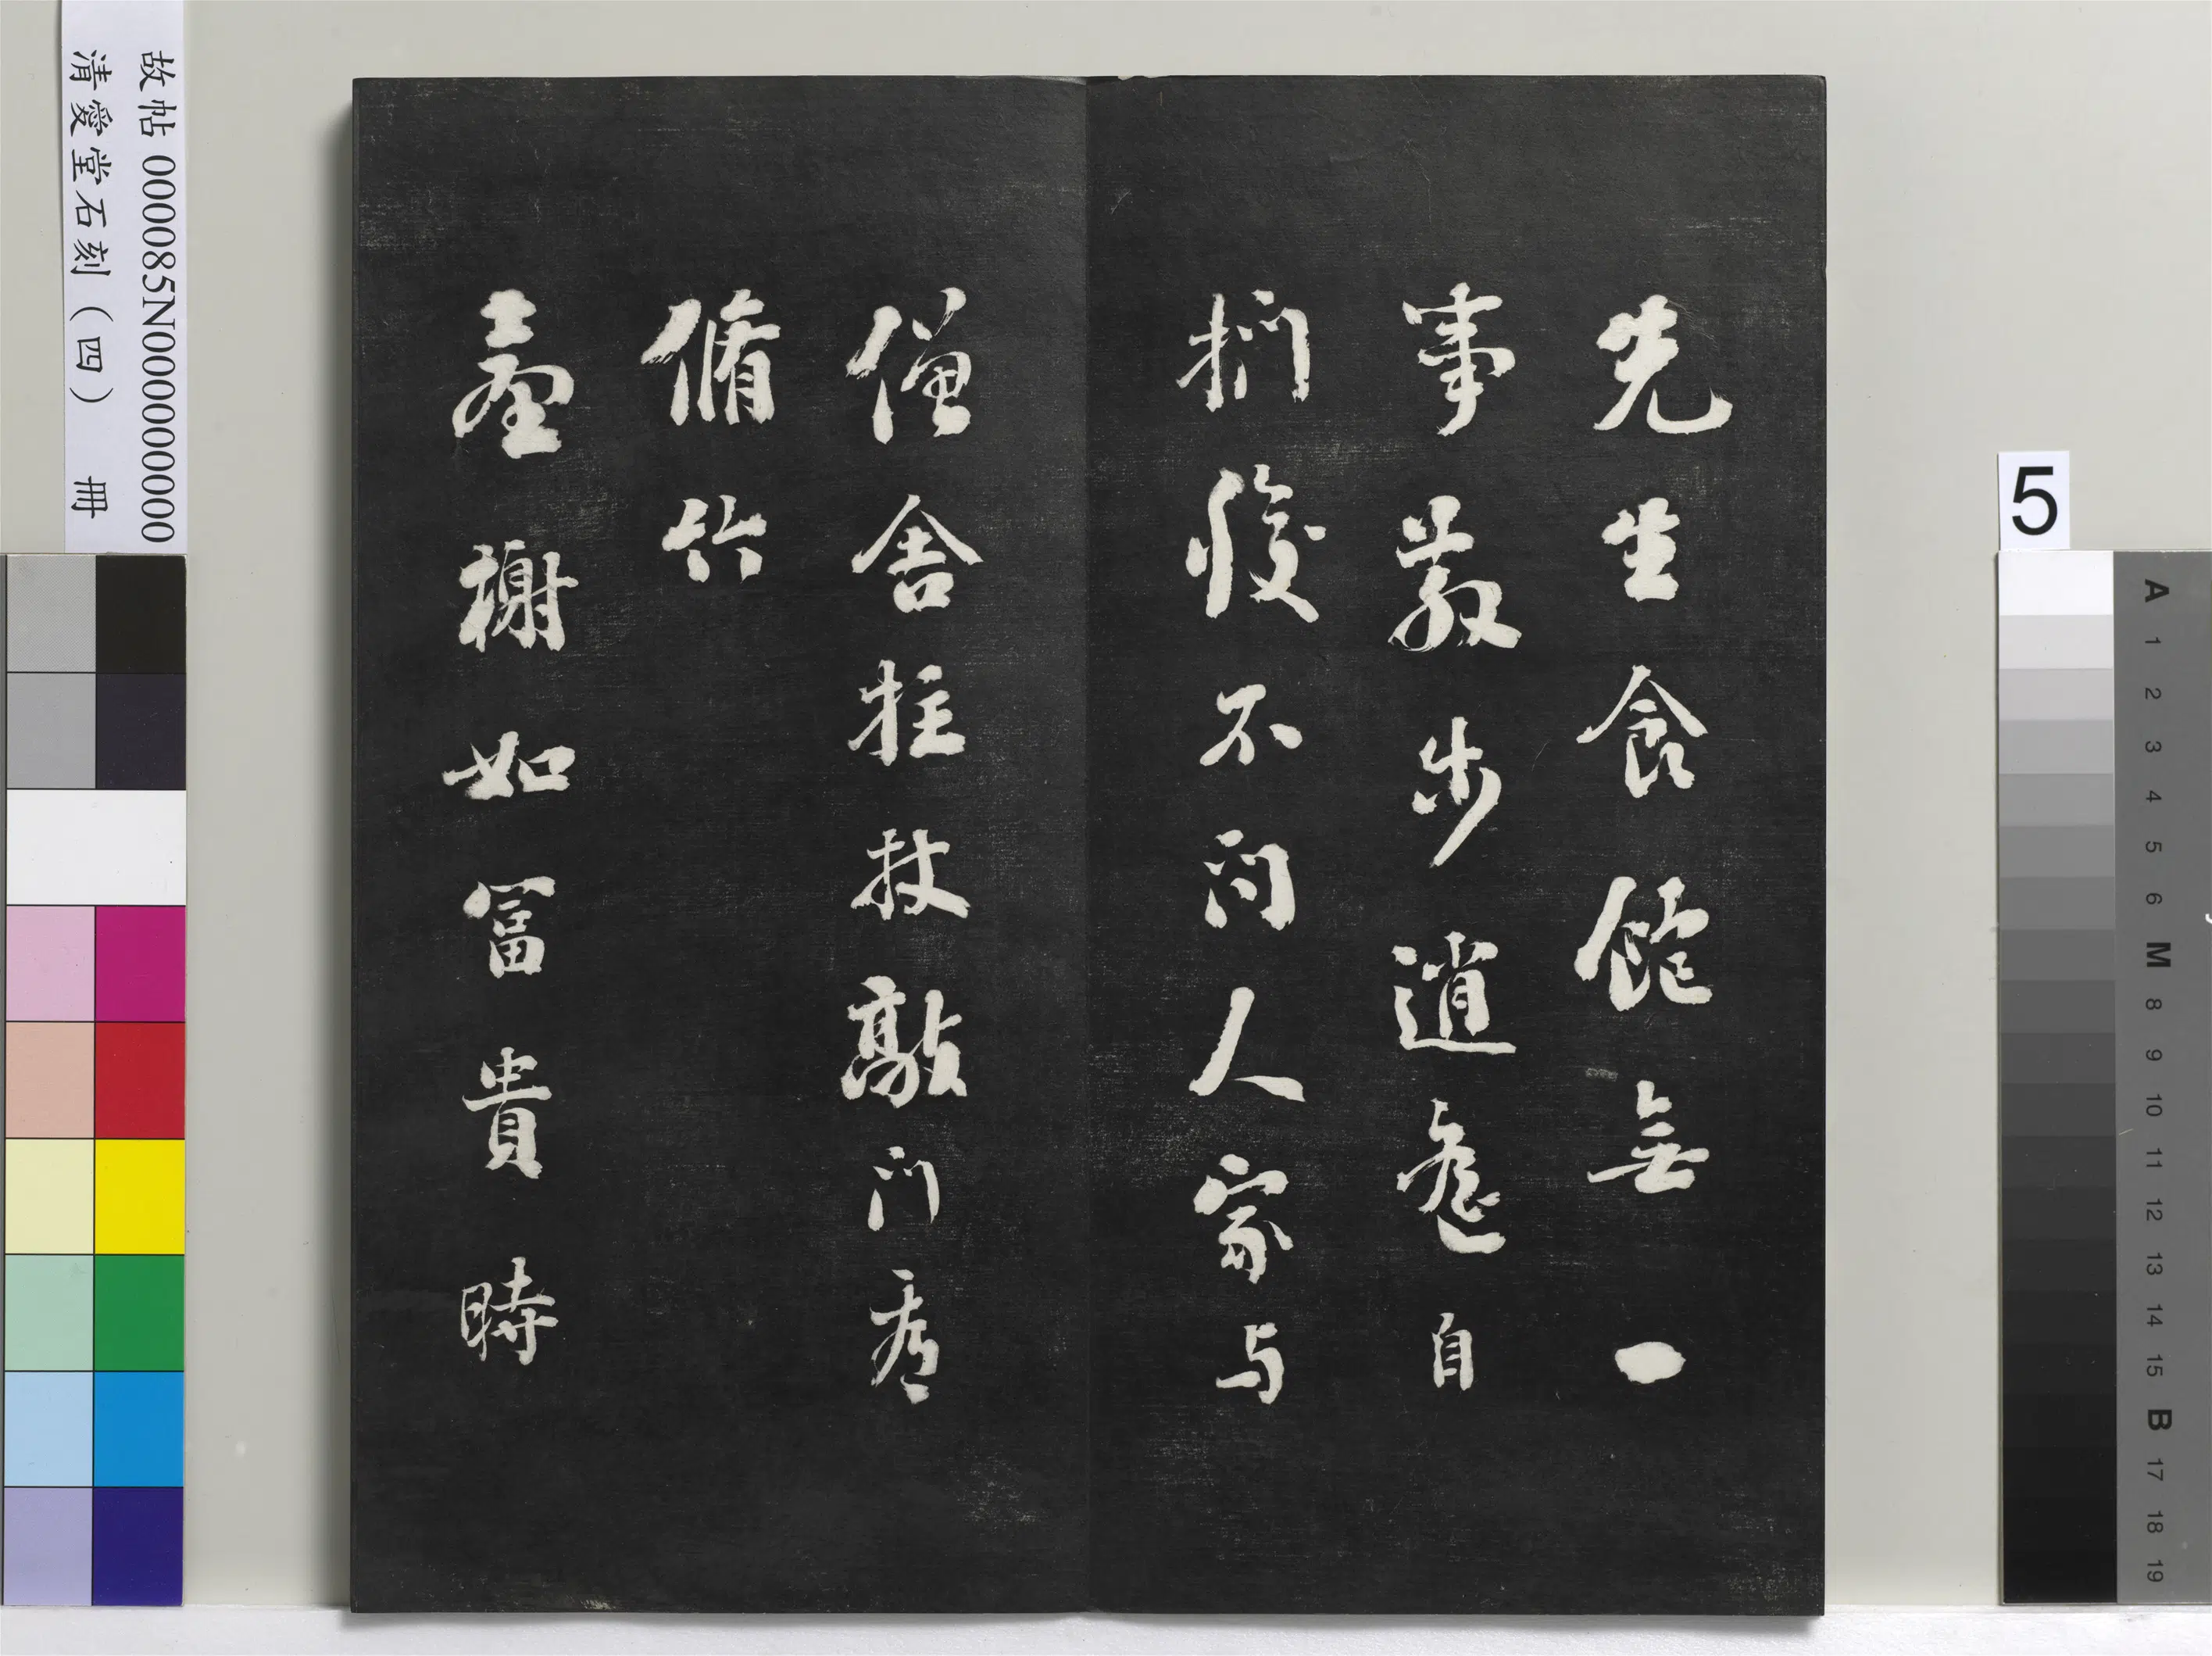 先生食飽無一
事散步逍遙自
捫腹不问人家与
僧舍拄杖敲门看
脩竹
臺榭如冨貴時
故帖 000085N000000000
清愛堂石刻（四） 冊
5
A 1 2 3 4 5 6 M 8 9 10 11 12 13 14 15 B 17 18 19